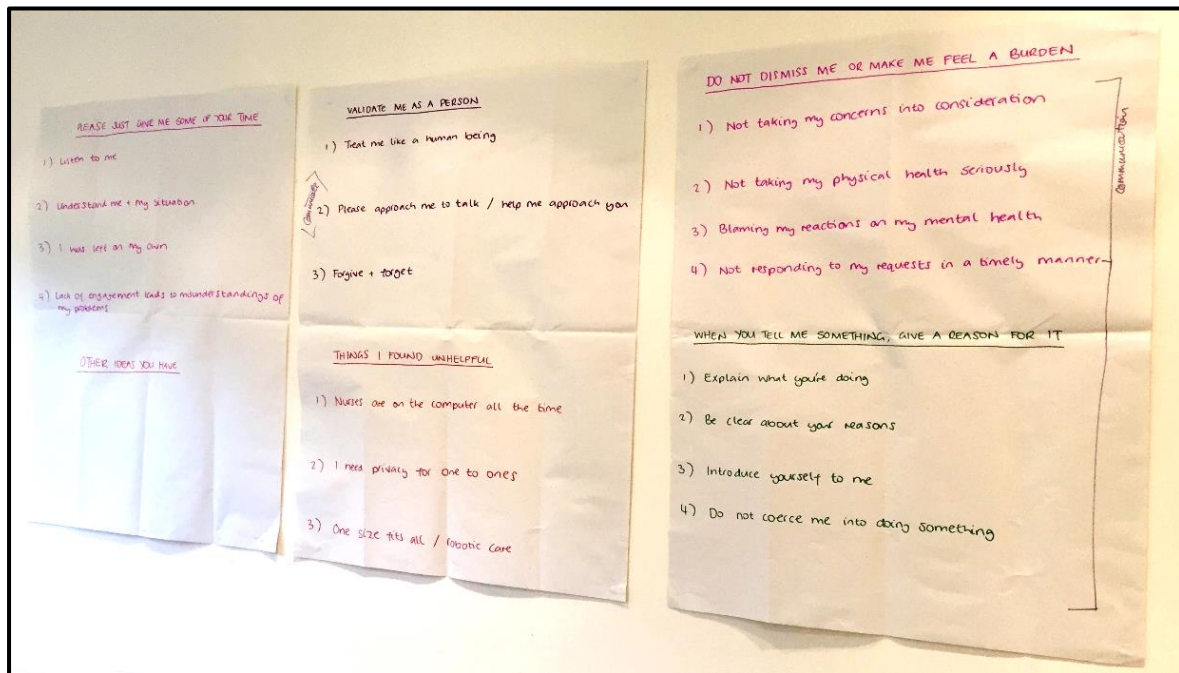 PLEASE JUST GIVE ME SOME OF YOUR TIME
1) Listen to me
2) Understand me + my situation
3) I was left on my own
4) Lack of engagement leads to misunderstandings of
my problems
OTHER IDEAS YOU HAVE
VALIDATE ME AS A PERSON
1) Treat me like a human being
Communicate
2) Please approach me to talk / help me approach you
3) Forgive + forget
THINGS I FOUND UNHELPFUL
1) Nurses are on the computer all the time
2) I need privacy for one to ones
3) One size fits all / robotic care
DO NOT DISMISS ME OR MAKE ME FEEL A BURDEN
1) Not taking my concerns into consideration
2) Not taking my physical health seriously
3) Blaming my reactions on my mental health
4) Not responding to my requests in a timely manner
WHEN YOU TELL ME SOMETHING, GIVE A REASON FOR IT
1) Explain what you're doing
2) Be clear about your reasons
3) Introduce yourself to me
4) Do not coerce me into doing something
Communication